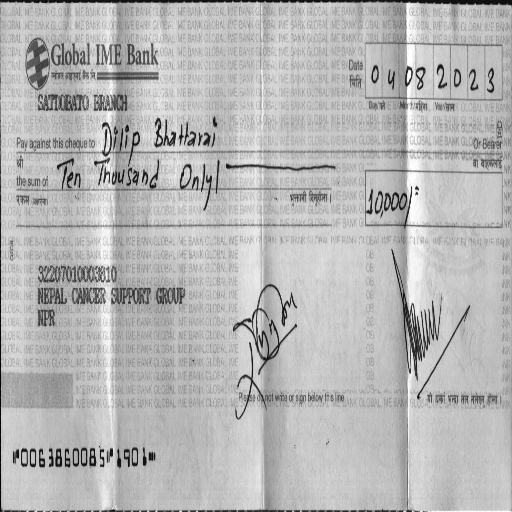 Global IME Bank
ग्लोबल आइएमई बैंक लि.
SATDOBATO BRANCH
Date
मिति
04082023
Day/गते Month/महिना Year/साल
Pay against this cheque to Dilip Bhattarai
Or Bearer
श्री
वा वाहकलाई
the sum of Ten Thousand Only/
रकम (अक्षरमा)
भुक्तानी दिनुहोला ।
10,000/=
32207010003810
NEPAL CANCER SUPPORT GROUP
NPR
Please do not write or sign below this line
"0063860085" 1901"